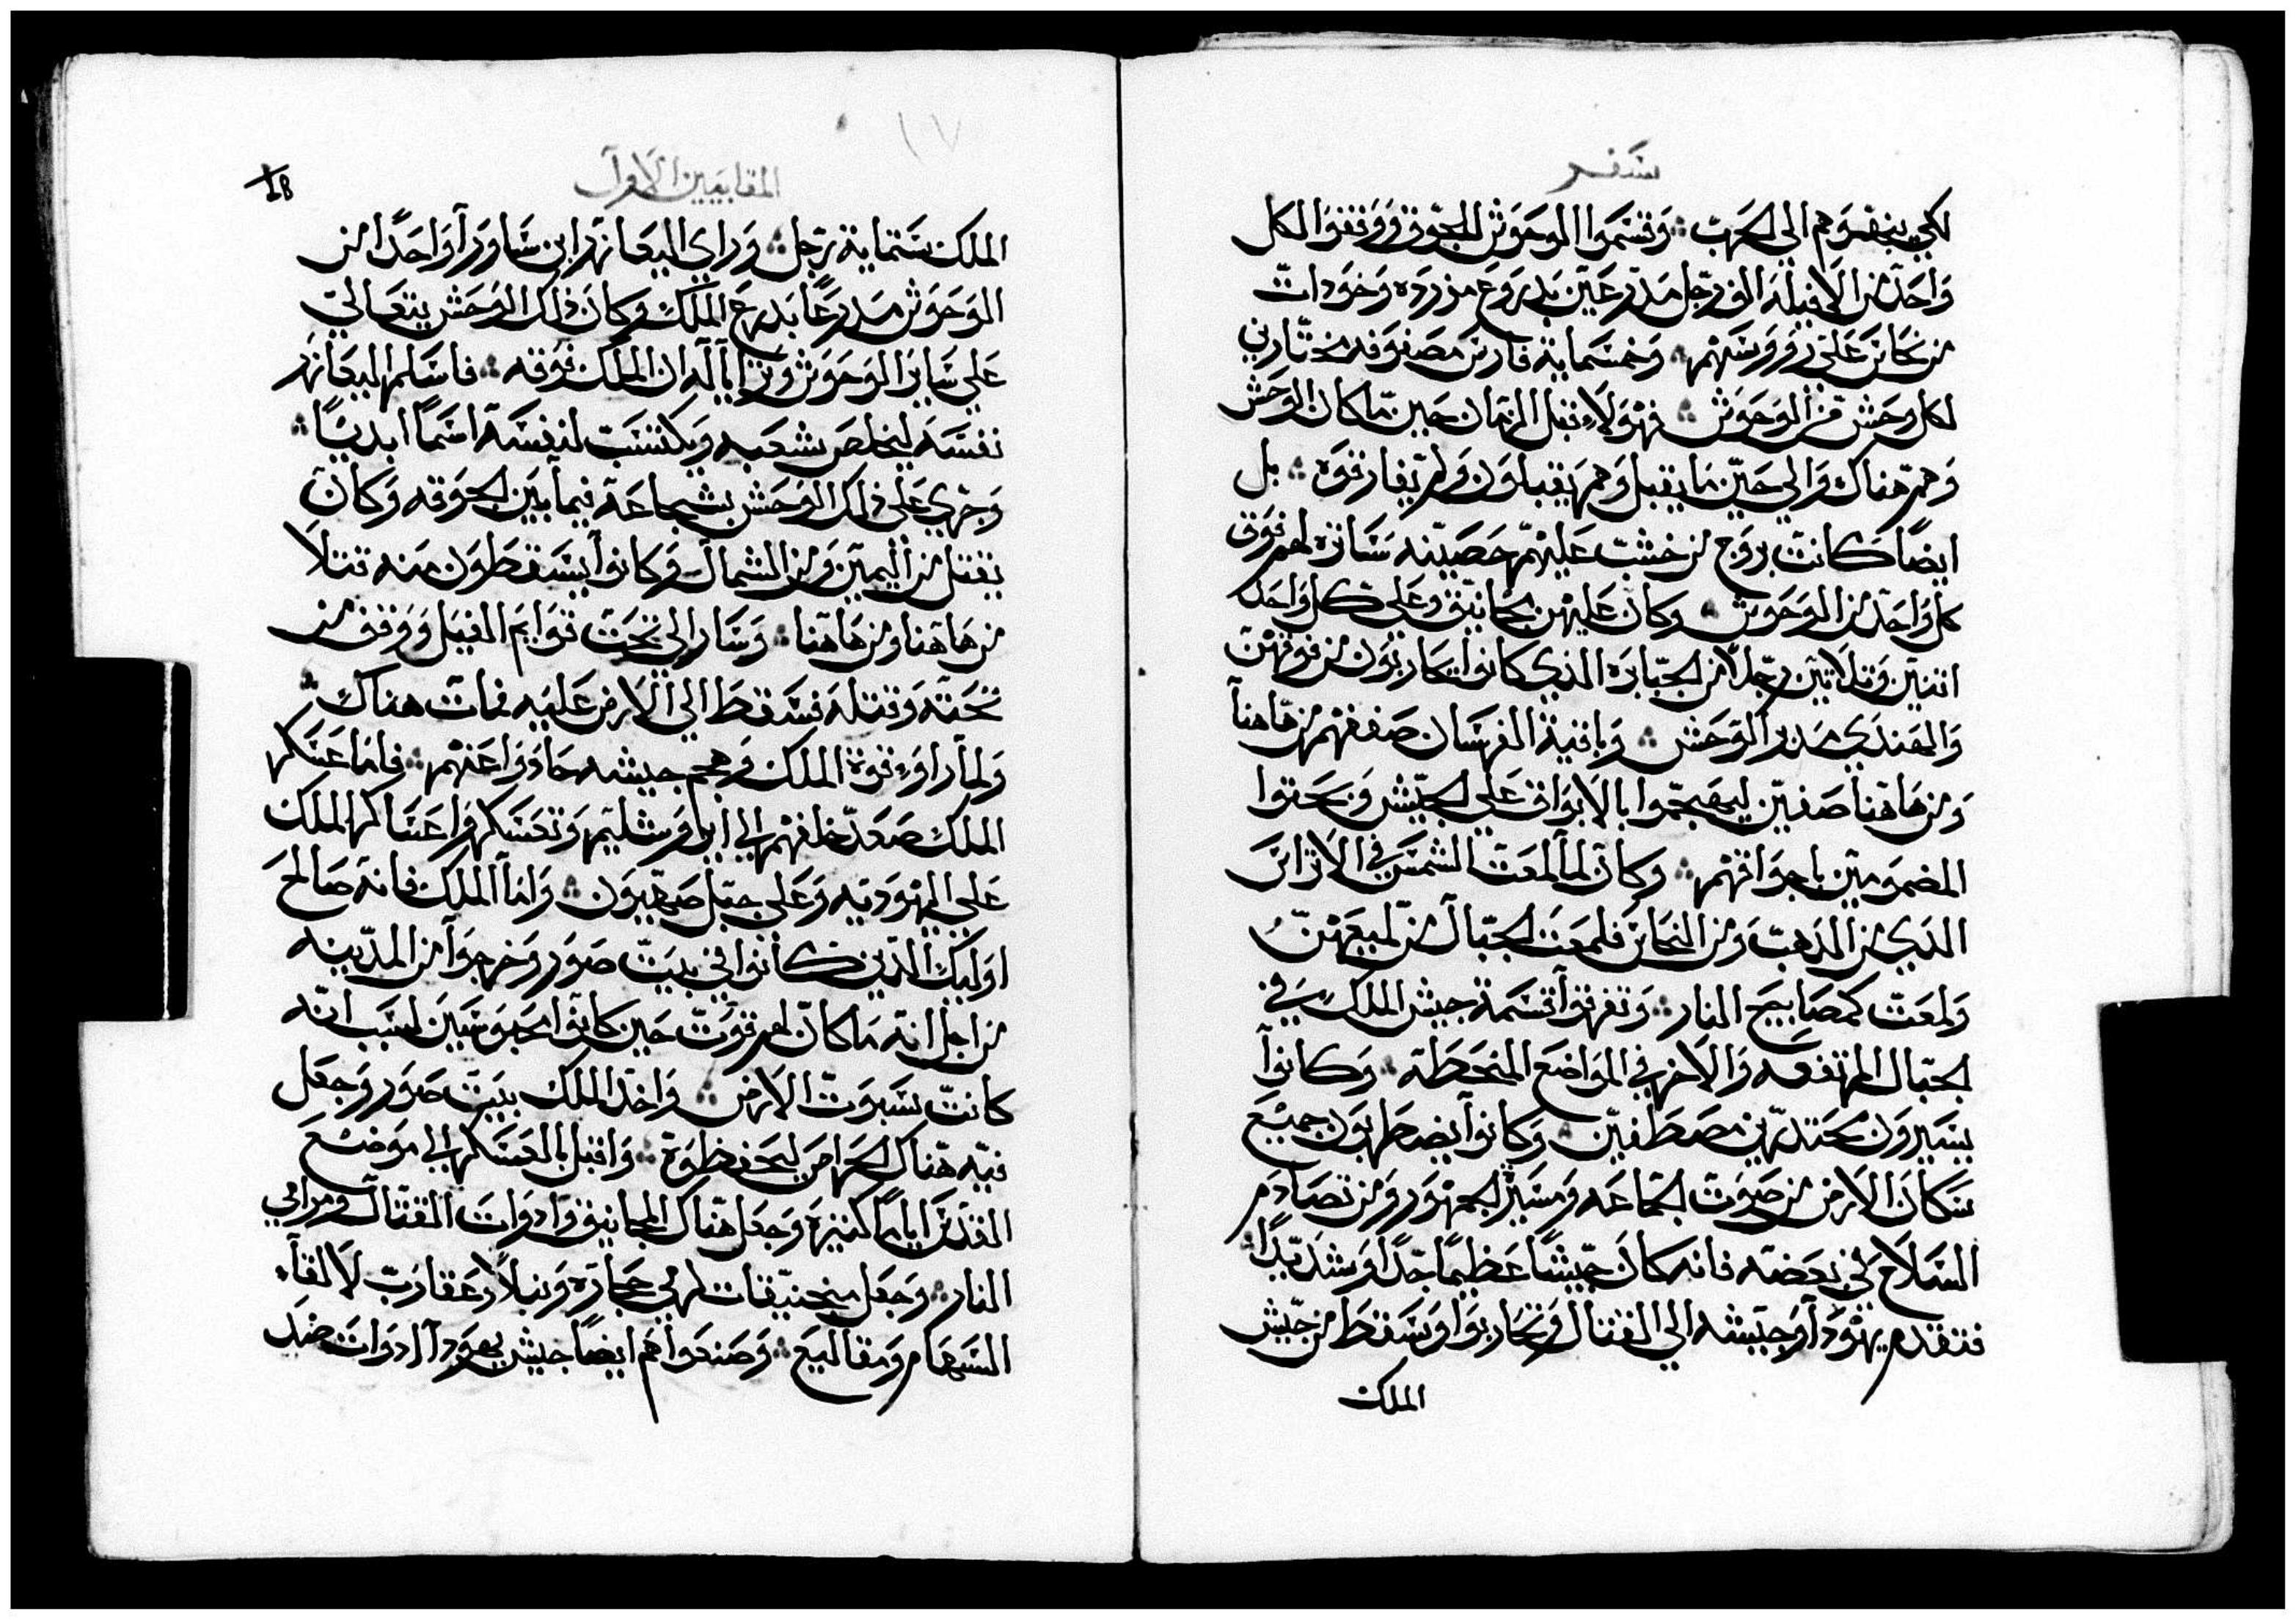 سفر
لكي ينخسوهم الي الحرب ۞ وقسموا الوحوش للجوق ووقفوا لكل
واحد من الافيله الف رجل مدرعين بدروع مزرده وخودات
من نحاس علي رووسهم ۞ وخمسماية فارس مصفوفه مختارين
لكل وحش من الوحوش ۞ فهولاء قبل الزمان حين ما كان الوحش
وهم هناك والي حين ما يقبل وهم يقبلون ولم يفارقوه ۞ بل
ايضا كانت بروج من خشب عليهم حصينه ساتره لهم فوق
كل واحد من الوحوش ۞ وكان عليهن مجانيق وعلي كل واحد
اتنين وتلاتين رجلا من الجبابره الذي كانوا يحاربون من فوقهن
والهندي مدبر الوحش ۞ وباقية الفرسان صففهم من هاهنا
ومن هاهنا صفين ليهيجوا بالابواق علي الجيش ويحتوا
المضمومين باجواقهم ۞ وكان لما لمعت الشمس في الاتراس
الذي من الذهب ومن النحاس فلمعت الجبال من لميعهن
ولمعت كمصابيح النار ۞ وتفرقوا قسمة جيش الملك في
الجبال المرتفعه والاخر في المواضع المنحطه ۞ وكانوا
يسيرون محتدرين مصطفين ۞ وكانوا يضطربون جميع
سكان الارض من صوت الجماعه ومسير الجمهور ومن تصادم
السلاح في بعضه فانه كان جيشا عظيما جدا وشديدا ۞
فتقدم يهودا وجيشه الي القتال وتحاربوا وسقط من جيش
الملك
١٧
18
المقابيين الاول
الملك ستماية رجل ۞ وراي اليعازر ابن ساورا واحدا من
الوحوش مدرعا بدرع الملك وكان ذلك الوحش يتعالي
علي ساير الوحوش وترايا له ان الملك فوقه ۞ فاسلم اليعازر
نفسه ليخلص شعبه ويكتسب لنفسه اسما ابديا ۞
وجري علي ذلك الوحش بشجاعة فيما بين الجوقه وكان
يقتل من اليمين ومن الشمال وكانوا يسقطون منه قتلا
من هاهنا ومن هاهنا ۞ وسار الي تحت قوايم الفيل ووقف من
تحته وقتله فسقط الي الارض عليه فمات هناك ۞
ولما راوء قوة الملك وهجم جيشه حادوا عنهم ۞ فاما عسكر
الملك صعد خلفهم الي ايروشليم وتعسكروا عساكر الملك
علي اليهوديه وعلي جبل صهيون ۞ واما الملك فانه صالح
اوليك الذين كانوا في بيت صور وخرجوا من المدينه
من اجل انه ما كان لهم قوت حين كانوا محبوسين لسبب انه
كانت سبوت الارض ۞ واخد الملك بيت صور وجعل
فيه هناك الحراس ليحفظوه ۞ واقبل بالعسكر الي موضع
القدس اياما كتيره وجعل هناك المجانيق وادوات القتال ومرامي
النار ۞ وجعل منجنيقات لرمي حجاره ونبلا وعقارب لالقاء
السهام ومقاليع ۞ وصنعوا هم ايضا جيش يهودا ادوات ضد